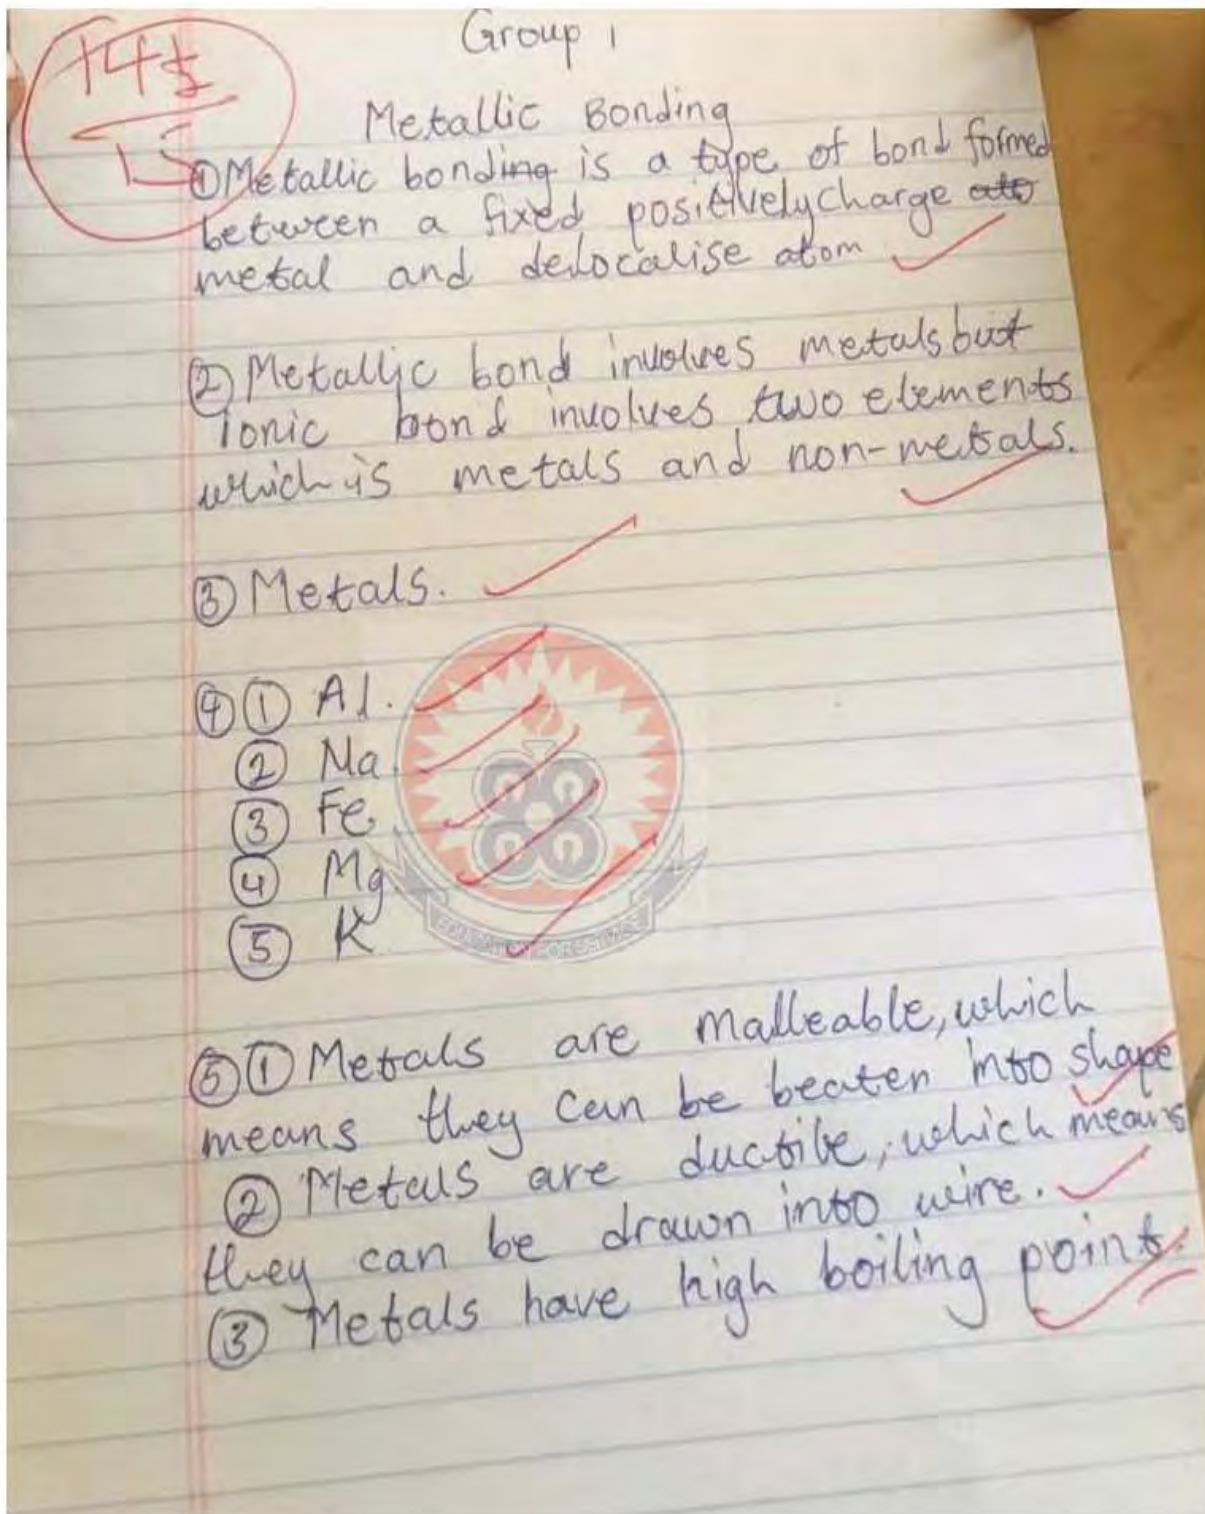 Group 1
14½
15
Metallic Bonding
① Metallic bonding is a type of bond formed
between a fixed positively charge ato
metal and delocalise atom
② Metallic bond involves metals but
ionic bond involves two elements
which is metals and non-metals.
③ Metals.
④ ① Al.
② Na.
③ Fe
④ Mg.
⑤ K
⑤ ① Metals are malleable, which
means they can be beaten into shape
② Metals are ductile, which means
they can be drawn into wire.
③ Metals have high boiling point.